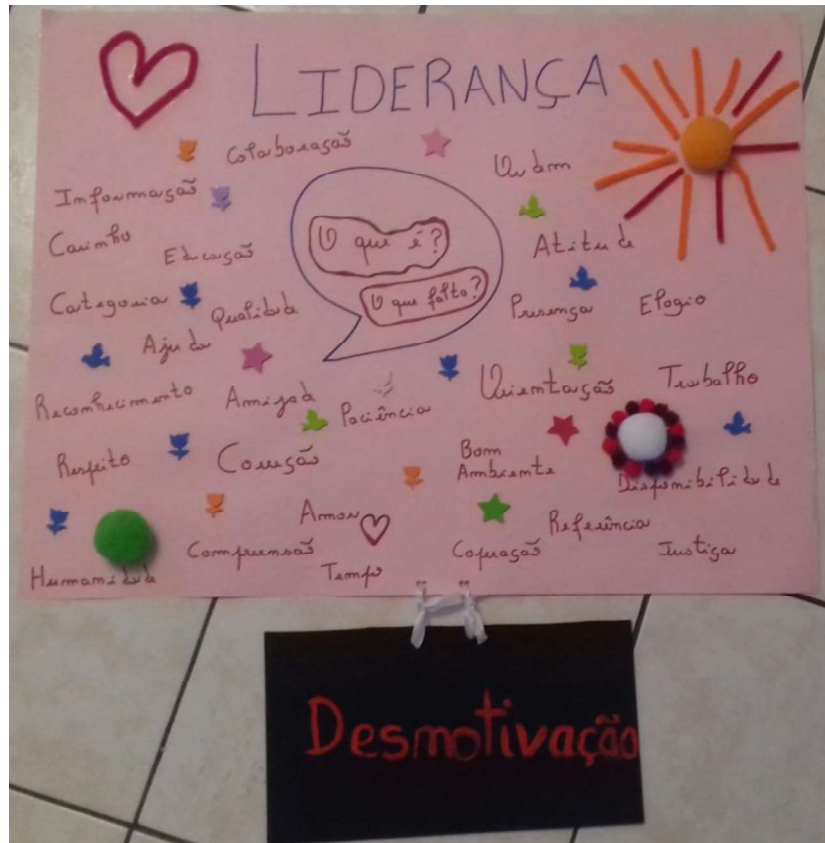 LIDERANÇA
Colaboração
Ordem
Informação
O que é?
O que falta?
Carinho
Educação
Atitude
Categoria
Qualidade
Presença
Elogio
Ajuda
Reconhecimento
Amizade
Paciência
Orientação
Trabalho
Respeito
Correção
Bom
Ambiente
Disponibilidade
Amor
Referência
Compreensão
Justiça
Humanidade
Tempo
Desmotivação